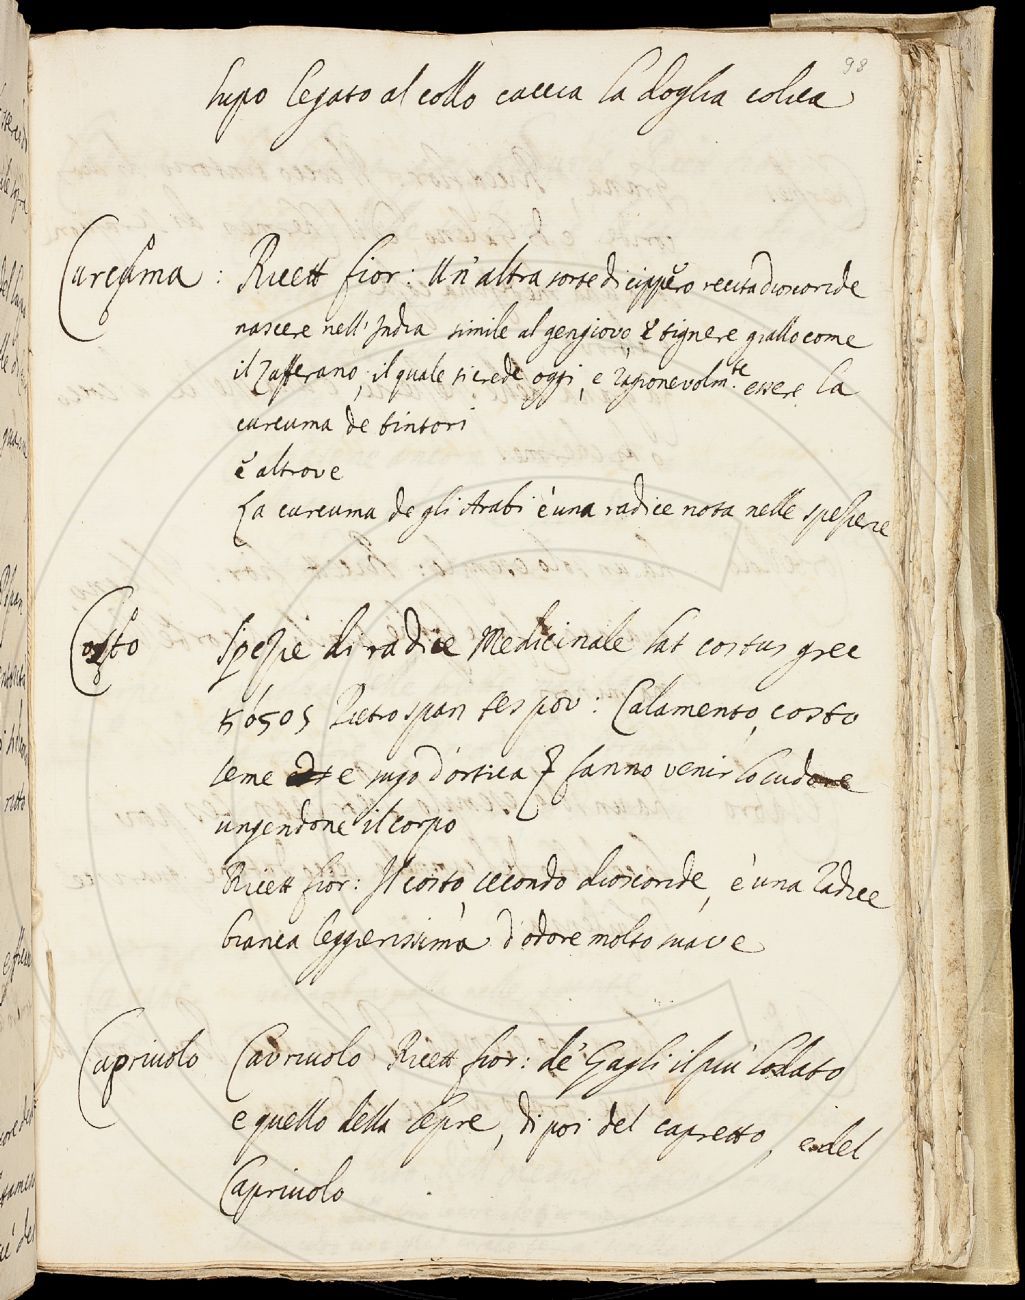 98
lupo legato al collo caccia la doglia colica
Curcuma : Ricett fior: Un'altra sorte di cippero recita dioscoride
nascere nell'India simile al gengiovo, e tignere giallo come
il Zafferano, il quale si crede oggi, e ragionevolm.te essere la
curcuma de tintori
e altrove
La curcuma degli Arabi è una radice nota nelle spezierie
Costo Spezie di radice Medicinale lat costus grec
κόσος Pietro span tes pov: Calamento, costo
seme e sugo d'ortica fanno venir lo sudore
ungendone il corpo
Ricett fior: Il costo, secondo dioscoride, è una radice
bianca leggerissima d'odore molto suave
Capriuolo Cavriuolo Ricett fior: de' Gagli il più lodato
e quello della lepre, di poi del capretto, e del
Capriuolo